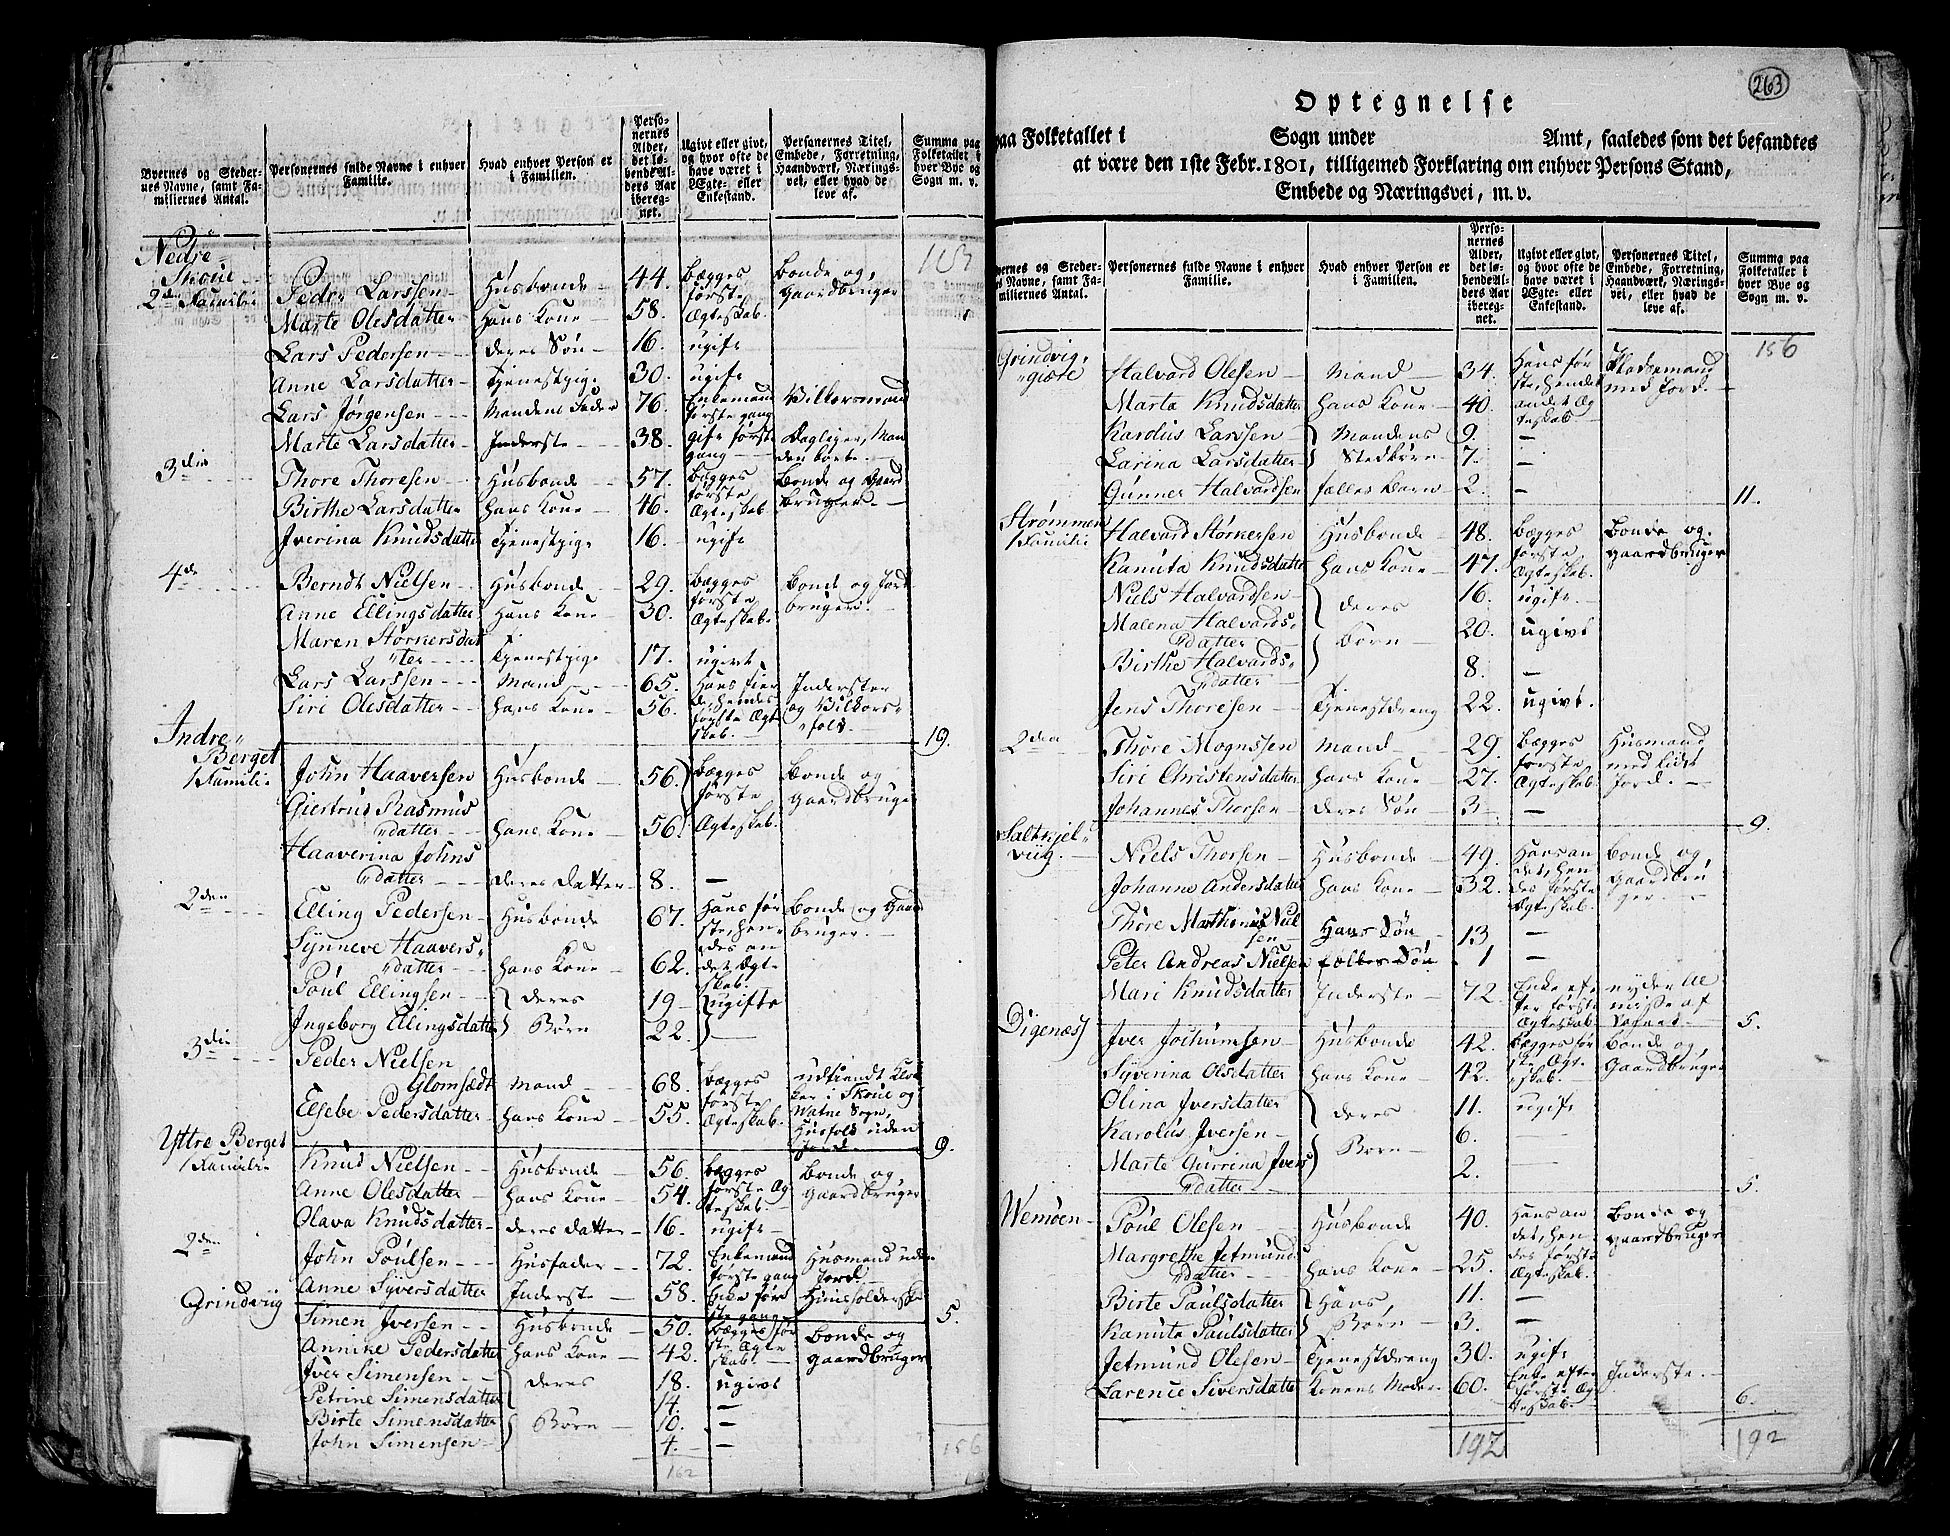 Byernes og Steder-
nes Navne, samt Fa-
miliernes Antal.
Personernes fulde Navne i enhver
Familie.
Hvad enhver Person er
i Familien.
Perso-
nernes
Alder,
det lø-
bende Al-
ders Aar
iberegnet.
Ugivt eller givt,
og hvor ofte de
have været i
Ægte- eller
Enkestand.
Personernes Titel,
Embede, Forretning,
Haandværk, Nærings-
vei, eller hvad de
leve af.
Summa paa
Folketallet i
hver Bye og
Sogn m. v.
Nedre
Skoue
2den Familie Peder Larssen Husbonde 44. bægges første Ægteskab. bonde og gaardbruger
Marte Olesdatter hans Kone 58.
Lars Pedersen deres Søn 16. ugift
Anne Larsdatter Tjenestpige 30. ugift
Lars Jørgensen Mandens Fader 76. Enkemand første gang Vilkorsmand
Marte Larsdatter Inderste 38. gift første gang
3die Thore Thoresen Husbonde 57. bægges første Ægteskab bonde og gaard bruger
Birthe Larsdatter hans Kone 46.
Iverina Knudsdatter Tjenestpige 16. ugift
4de Berndt Nielsen Husbonde 29. bægges første Ægteskab. bonde og Jord bruger.
Anne Ellingsdatter hans Kone 30.
Maren Størkersdat
ter Tjenestpige 17. ugivt
Lars Larssen Mand 65. Inderster og Vilkors-folk
Siri Olesdatter hans Kone 56.
19.
Indre
Berget
1 Familie John Haaversen Husbonde 56. bægges første Ægteskab. bonde og gaardbruger
Giertrud Rasmus
datter hans Kone 56.
Haaverina Johns
datter deres datter 8. —
2den Elling Pedersen Husbonde 67. hans første, hendes andet Ægteskab. bonde og gaard bruger.
Synneve Haavers
datter hans Kone 62.
Poul Ellingsen deres 19 ugifte
Ingeborg Ellingsdatter Børn 22.
3die Peder Nielsen
Glomsædt Mand 68. bægges første Ægteskab.
Elsebe Pedersdatter hans Kone 55. Husfolk uden Jord.
9.
Yttre Berget
1 Familie Knud Nielsen Husbonde 56. bægges første Ægteskab. bonde og gaardbruger
Anne Olesdatter hans Kone 54.
Olava Knudsdatter deres datter 16. ugift
2den John Poulsen Husfader 72. Enkemand første gang Husmand uden Jord.
Anne Syversdatter Inderste 58. Enke første gang
5.
Grindviig Simen Iversen Husbonde 50. bægges første Ægteskab. bonde og gaardbruger
Annike Pedersdatter hans Kone 42.
Iver Simensen deres 18. ugivt
Petrine Simensdatter 14. —
Birte Simensdatter Børn 10. —
John Simensen 4. —
162
156
263
Optegnelse
paa Folketallet i Sogn under Amt, saaledes som det befandtes
at være den 1ste Febr. 1801, tilligemed Forklaring om enhver Persons Stand,
Embede og Næringsvei, m. v.
ernes og Steder-
s Navne, samt Fa-
miliernes Antal.
Personernes fulde Navne i enhver
Familie.
Hvad enhver Person er
i Familien.
Perso-
nernes
Alder,
det lø-
bende Al-
ders Aar
iberegnet.
Ugivt eller givt,
og hvor ofte de
have været i
Ægte- eller
Enkestand.
Personernes Titel,
Embede, Forretning,
Haandværk, Nærings-
vei, eller hvad de
leve af.
Summa paa
Folketallet i
hver Bye og
Sogn m. v.
156
Grindvig
giære Halvard Olesen Mand 34. hans første, hendes andet Ægteskab Pladsemand med Jord.
Marta Knudsdatter hans Kone 40.
Kardus Larssen Mandens 9. —
Larina Larsdatter Stedbørn 7. —
Gunner Halvardsen fælles barn 2. —
11.
Strømmen
1 Familie Halvard Størkersen Husbonde 48. bægges første Ægteskab. bonde og gaardbruger
Kanuta Knudsdatter hans Kone 47.
Niels Halvardsen deres 16. ugift
Malena Halvards-
datter Børn 20. ugivt
Birthe Halvards-
datter 8. —
Jens Thoresen Tjenestdreng 22. ugivt.
2den Thore Mognssen Mand 29. bægges første Ægteskab Husmand med lidt Jord.
Siri Christensdatter hans Kone 27.
Johannes Thorsen deres Søn 3. —
9.
Saltkjel
viig. Niels Thorsen Husbonde 49. hans andet, hendes første Ægteskab. bonde og gaardbruger.
Johanne Andersdatter hans Kone 32.
Thore Marthinus Niel
sen hans Søn 13 —
Peter Andreas Nielsen fælles Søn 1 —
Mari Knudsdatter Inderste 72. Enke efter første Ægteskab
5.
Digenæs Iver Jochumsen Husbonde 42. bægges første Ægteskab. bonde og gaardbruger
Syverina Olsdatter hans Kone 42.
Olina Iversdatter deres 11. ugift
Karolus Iversen 6. —
Marte Gurrina Ivers
datter Børn 2. —
5.
Wemøen Poul Olesen Husbonde 40. hans andet, hendes første Ægteskab. bonde og gaardbruger
Margrethe Jetmunds
datter hans Kone 25.
Birte Paulsdatter hans 11. —
Kanuta Paulsdatter Børn 3. —
Jetmund Olesen Tjenestdreng 30. ugift
Larence Siversdatter Konens Moder 60. Enke efter første Ægteskab. Inderste.
6.
192 192